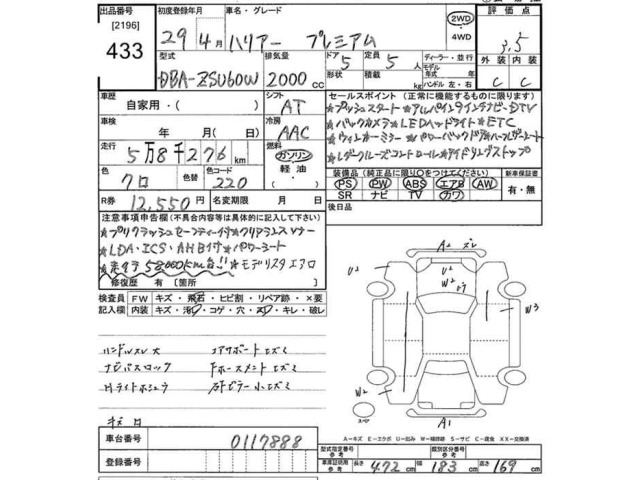 出品番号 初度登録年月 車名・グレード 2WD 評価点
[2196] 29年4月 ハリアー プレミアム 4WD 3.5
433 型式 排気量 ドア 定員 ディーラー・並行 外装 内装
DBA-ZSU60W 2000cc 5 5人 モデル 年式 年 C C
形状 積載 kg ハンドル 左・右
車歴 シフト セールスポイント (正常に機能するものに限ります)
自家用・( ) AT ★プッシュスタート★アルパイン9インチナビ・DTV
車検 冷房 ★バックカメラ★LEDヘッドライト★ETC
年 月( 日) AAC ★ウィンカーミラー★パワーバックドア★ハーフレザーシート
走行 燃料 ★レダークルーズコントロール★アイドリングストップ
5万8千276km ガソリン
色 色替 色コード 軽油
クロ 220 ( )
装備 (純正品に限り○をつけてください) 新車保証書
R券 12,550円 名変期限 月 日
PS PW ABS エアB AW 有・無
SR ナビ TV カワ
注意事項申告欄(不具合内容等は具体的に記入して下さい) 後日品
★プリクラッシュセーフティ付★クリアランスソナー
★LDA・ICS・AHB付★パワーシート
58000km台!!★モデリスタエアロ
修復歴 有 [箇所 ]
検査員記入欄 FW キズ・飛石・ヒビ割・リペア跡・×要
内装 キズ・汚レ・コゲ・穴・スレ・キレ・破レ
A2 ズレ
U2 U2
W2
W3
W2
スペア
A1
ハンドルスレ大 コアサポートキズミ
ナビパスロック Fホースメントキズミ
Hライトホシュウ
キズ 凹
A-キズ E-エクボ U-凹み W-補修跡 S-サビ C-腐食 XX-交換済
車台番号 0117888
型式指定番号 参考 類別区分番号 参考
登録番号
車庫証明用 参考 長さ 472cm 幅 183cm 高さ 169cm